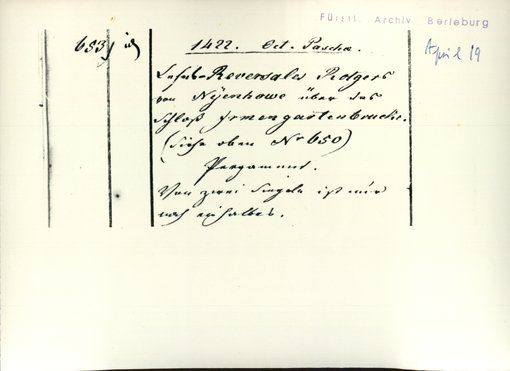 Fürstl. Archiv Berleburg
653) id)
1422. Oct. Pascha.
April 19
Lehns-Reversales Rotgers
von Nÿenhowe über das
Schloß Irmengartenbrucke.
(Siehe oben Nr 650)
Pergament.
Von zwei Siegeln ist nur
noch ein halbes.